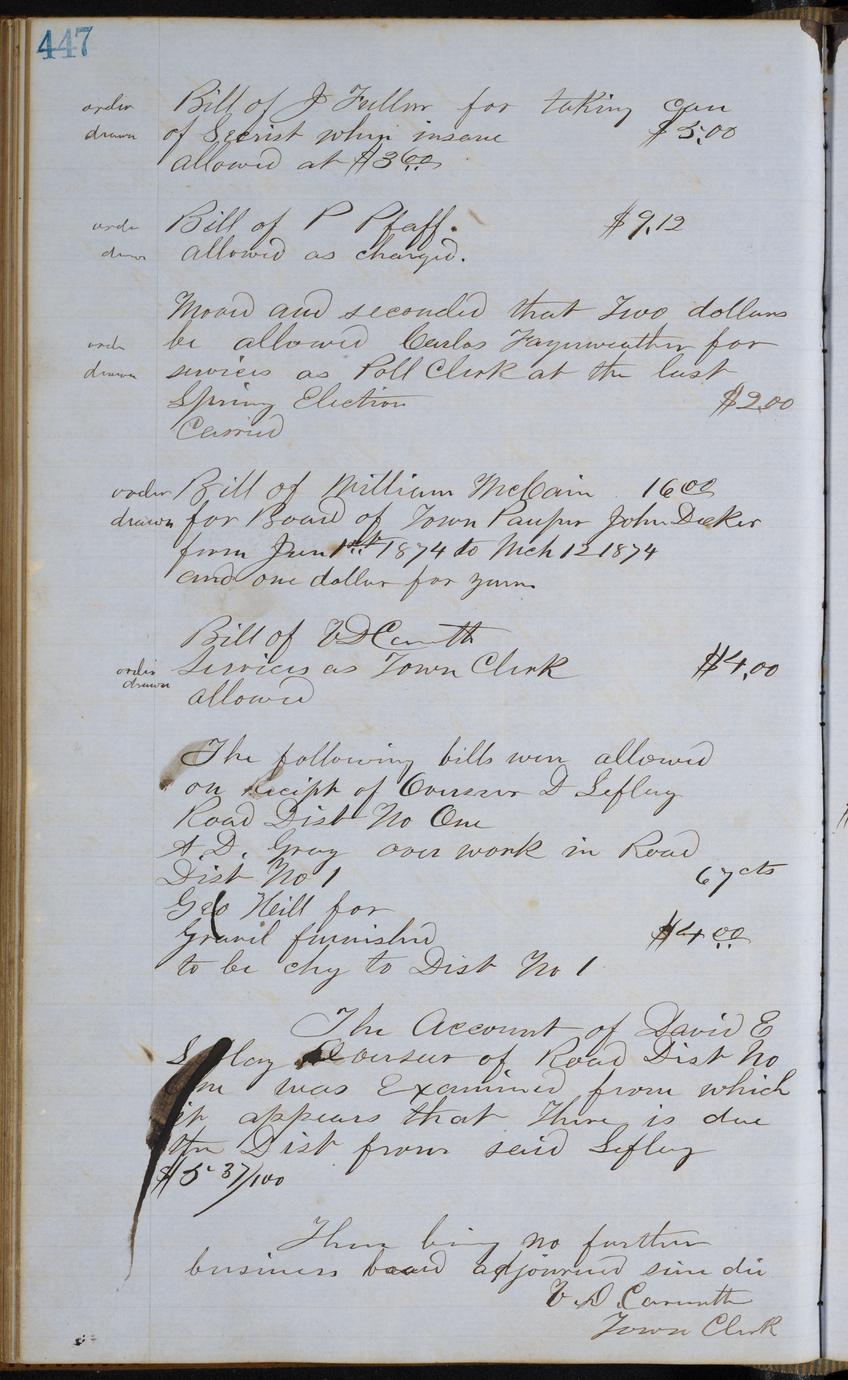 447
order Bill of J Fuller for taking care
drawn of Secrist when insane $5.00
allowed at $3.00
order Bill of P Pfaff. $9.12
drawn allowed as charged.
Moved and seconded that Two dollars
order be allowed Carlos Fayerweather for
drawn services as Poll Clerk at the last
Spring Election $2.00
Carried
order Bill of William McCain 16 00
drawn for Board of Town Pauper John Decker
from Jan 1st 1874 to Mch 12 1874
and one dollar for yarn
Bill of V D Caruth
order Services as Town Clerk $4.00
drawn allowed
The following bills were allowed
on recipt of Overseer D Lefley
Road Dist No One
A. D. Gray over work in Road
Dist No 1 67 cts
Geo Hill for
Gravel furnished $4 00
to be chg to Dist No 1
The Account of David E
Overseer of Road Dist No
was Examined from which
it appears that There is due
the Dist from said Lefley
$5 37/100
There being no further
business board adjourned sine die
V. D. Caruth
Town Clerk